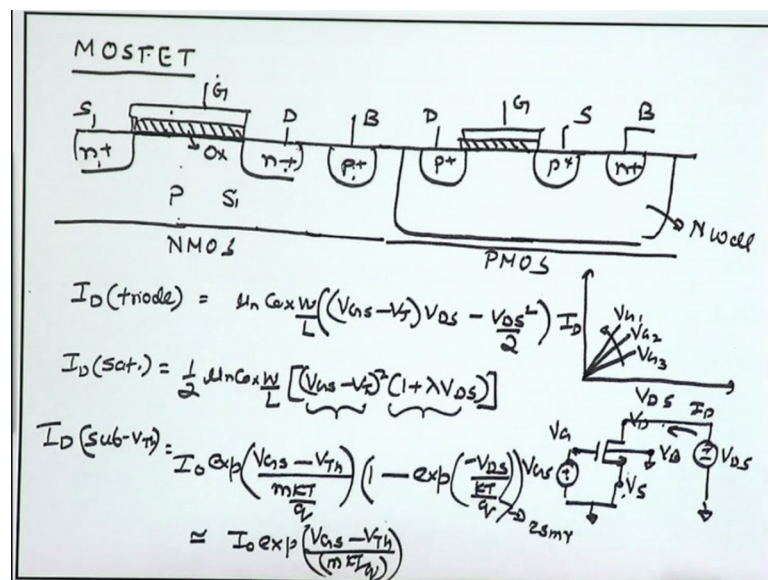 MOSFET
S G D B D G S B
n+ Ox n+ p+ p+ p+ n+
P Si
N Well
NMOS PMOS
I_D (triode) = μn Cox W/L ((VGS - VT) VDS - VDS²/2)
I_D
VG1
VG2
VG3
VDS
I_D (sat.) = 1/2 μn Cox W/L [(VGS - VT)² (1 + λVDS)]
I_D (sub-VTh) = I_0 exp((VGS - VTh)/(mKT/q)) (1 - exp(-VDS/(KT/q)))
→ 25mV
≃ I_0 exp((VGS - VTh)/(mKT/q))
VD I_D
VG VB VDS
VGS VS